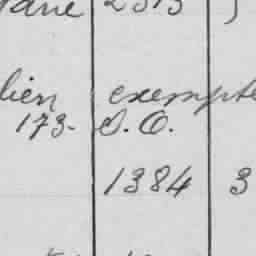 2313
lien exempte
173- S.O.
1384 3